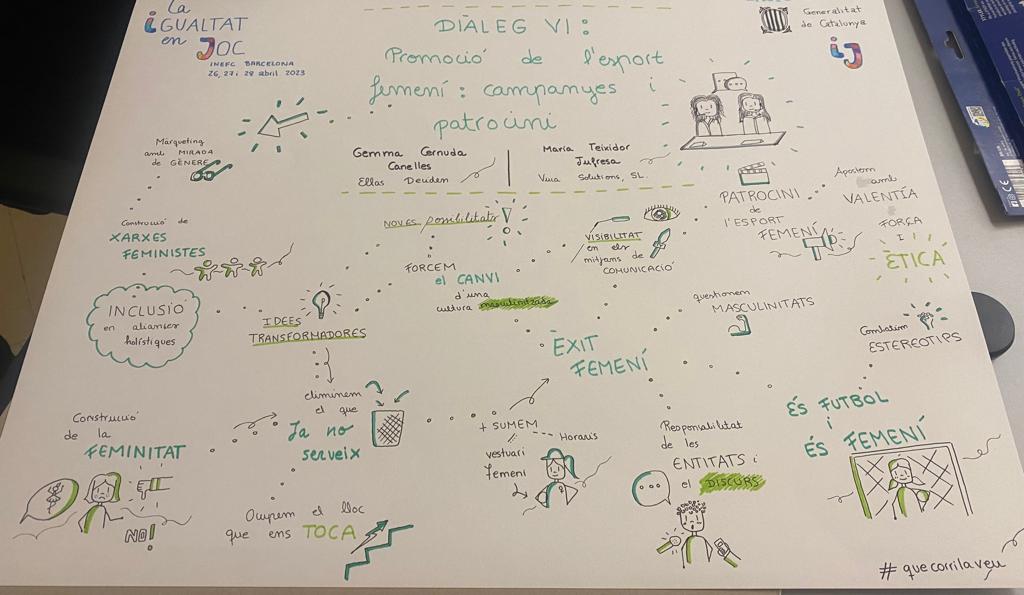 la
iGUALTAT
en JOC
INEFC BARCELONA
26, 27 i 28 abril 2023
DIÀLEG VI:
Promoció de l'esport
femení: campanyes i
patrocini
Generalitat
de Catalunya
iJ
Gemma Cernuda
Canelles
Ellas Deciden
María Teixidor
Jufresa
Solutions, SL.
Màrqueting
amb MIRADA
de GÈNERE
Construcció de
XARXES
FEMINISTES
INCLUSIÓ
en aliances
holístiques
IDEES
TRANSFORMADORES
NOVES possibilitats
FORCEM
el CANVI
d'una
cultura masculinitzada
VISIBILITAT
en els
mitjans de
COMUNICACIÓ
PATROCINI
de
l'ESPORT
FEMENÍ
Apostem
amb
VALENTÍA
FORÇA
I
ÈTICA
qüestionem
MASCULINITATS
Combatim
ESTEREOTIPS
ÈXIT
FEMENÍ
eliminem
el que
Ja no
serveix
Construcció
de la
FEMINITAT
NO!
Ocupem el lloc
que ens TOCA
+ SUMEM
Horaris
vestuari
femení
Responsabilitat
de les
ENTITATS i
el DISCURS
ÉS FUTBOL
i
ÉS FEMENÍ
#quecorrilaveu